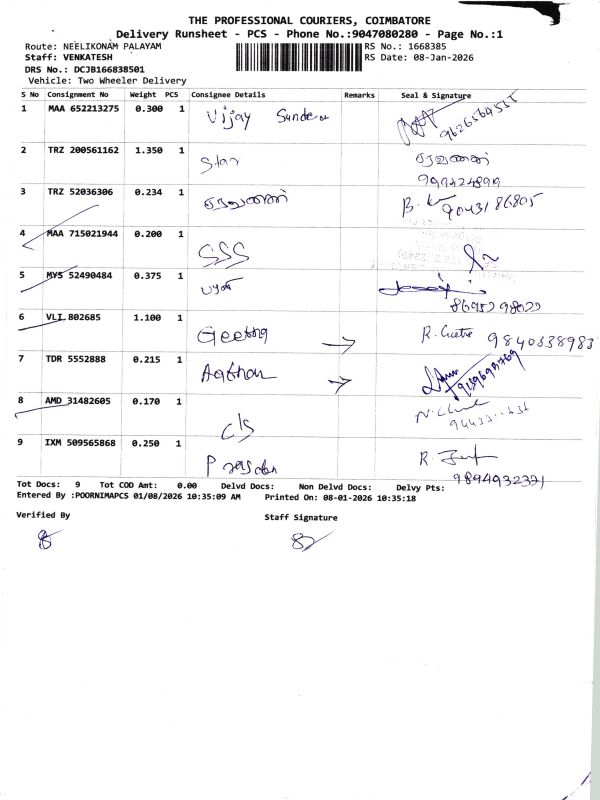 THE PROFESSIONAL COURIERS, COIMBATORE
Delivery Runsheet - PCS - Phone No.:9047080280 - Page No.:1
Route: NEELIKONAM PALAYAM RS No.: 1668385
Staff: VENKATESH RS Date: 08-Jan-2026
DRS No.: DCJB166838501
Vehicle: Two Wheeler Delivery
S No Consignment No Weight PCS Consignee Details Remarks Seal & Signature
1 MAA 652213275 0.300 1 Vijay
2 TRZ 200561162 1.350 1 Star சரவணன்
3 TRZ 52036306 0.234 1 சரவணன்
4 MAA 715021944 0.200 1 SSS
5 MYS 52490484 0.375 1
6 VLI 802685 1.100 1 Geetha → 9840338983
7 TDR 5552888 0.215 1 →
8 AMD 31482605 0.170 1 C/S
9 IXM 509565868 0.250 1
Tot Docs: 9 Tot COD Amt: 0.00 Delvd Docs: Non Delvd Docs: Delvy Pts:
Entered By :POORNIMAPCS 01/08/2026 10:35:09 AM Printed On: 08-01-2026 10:35:18
Verified By Staff Signature